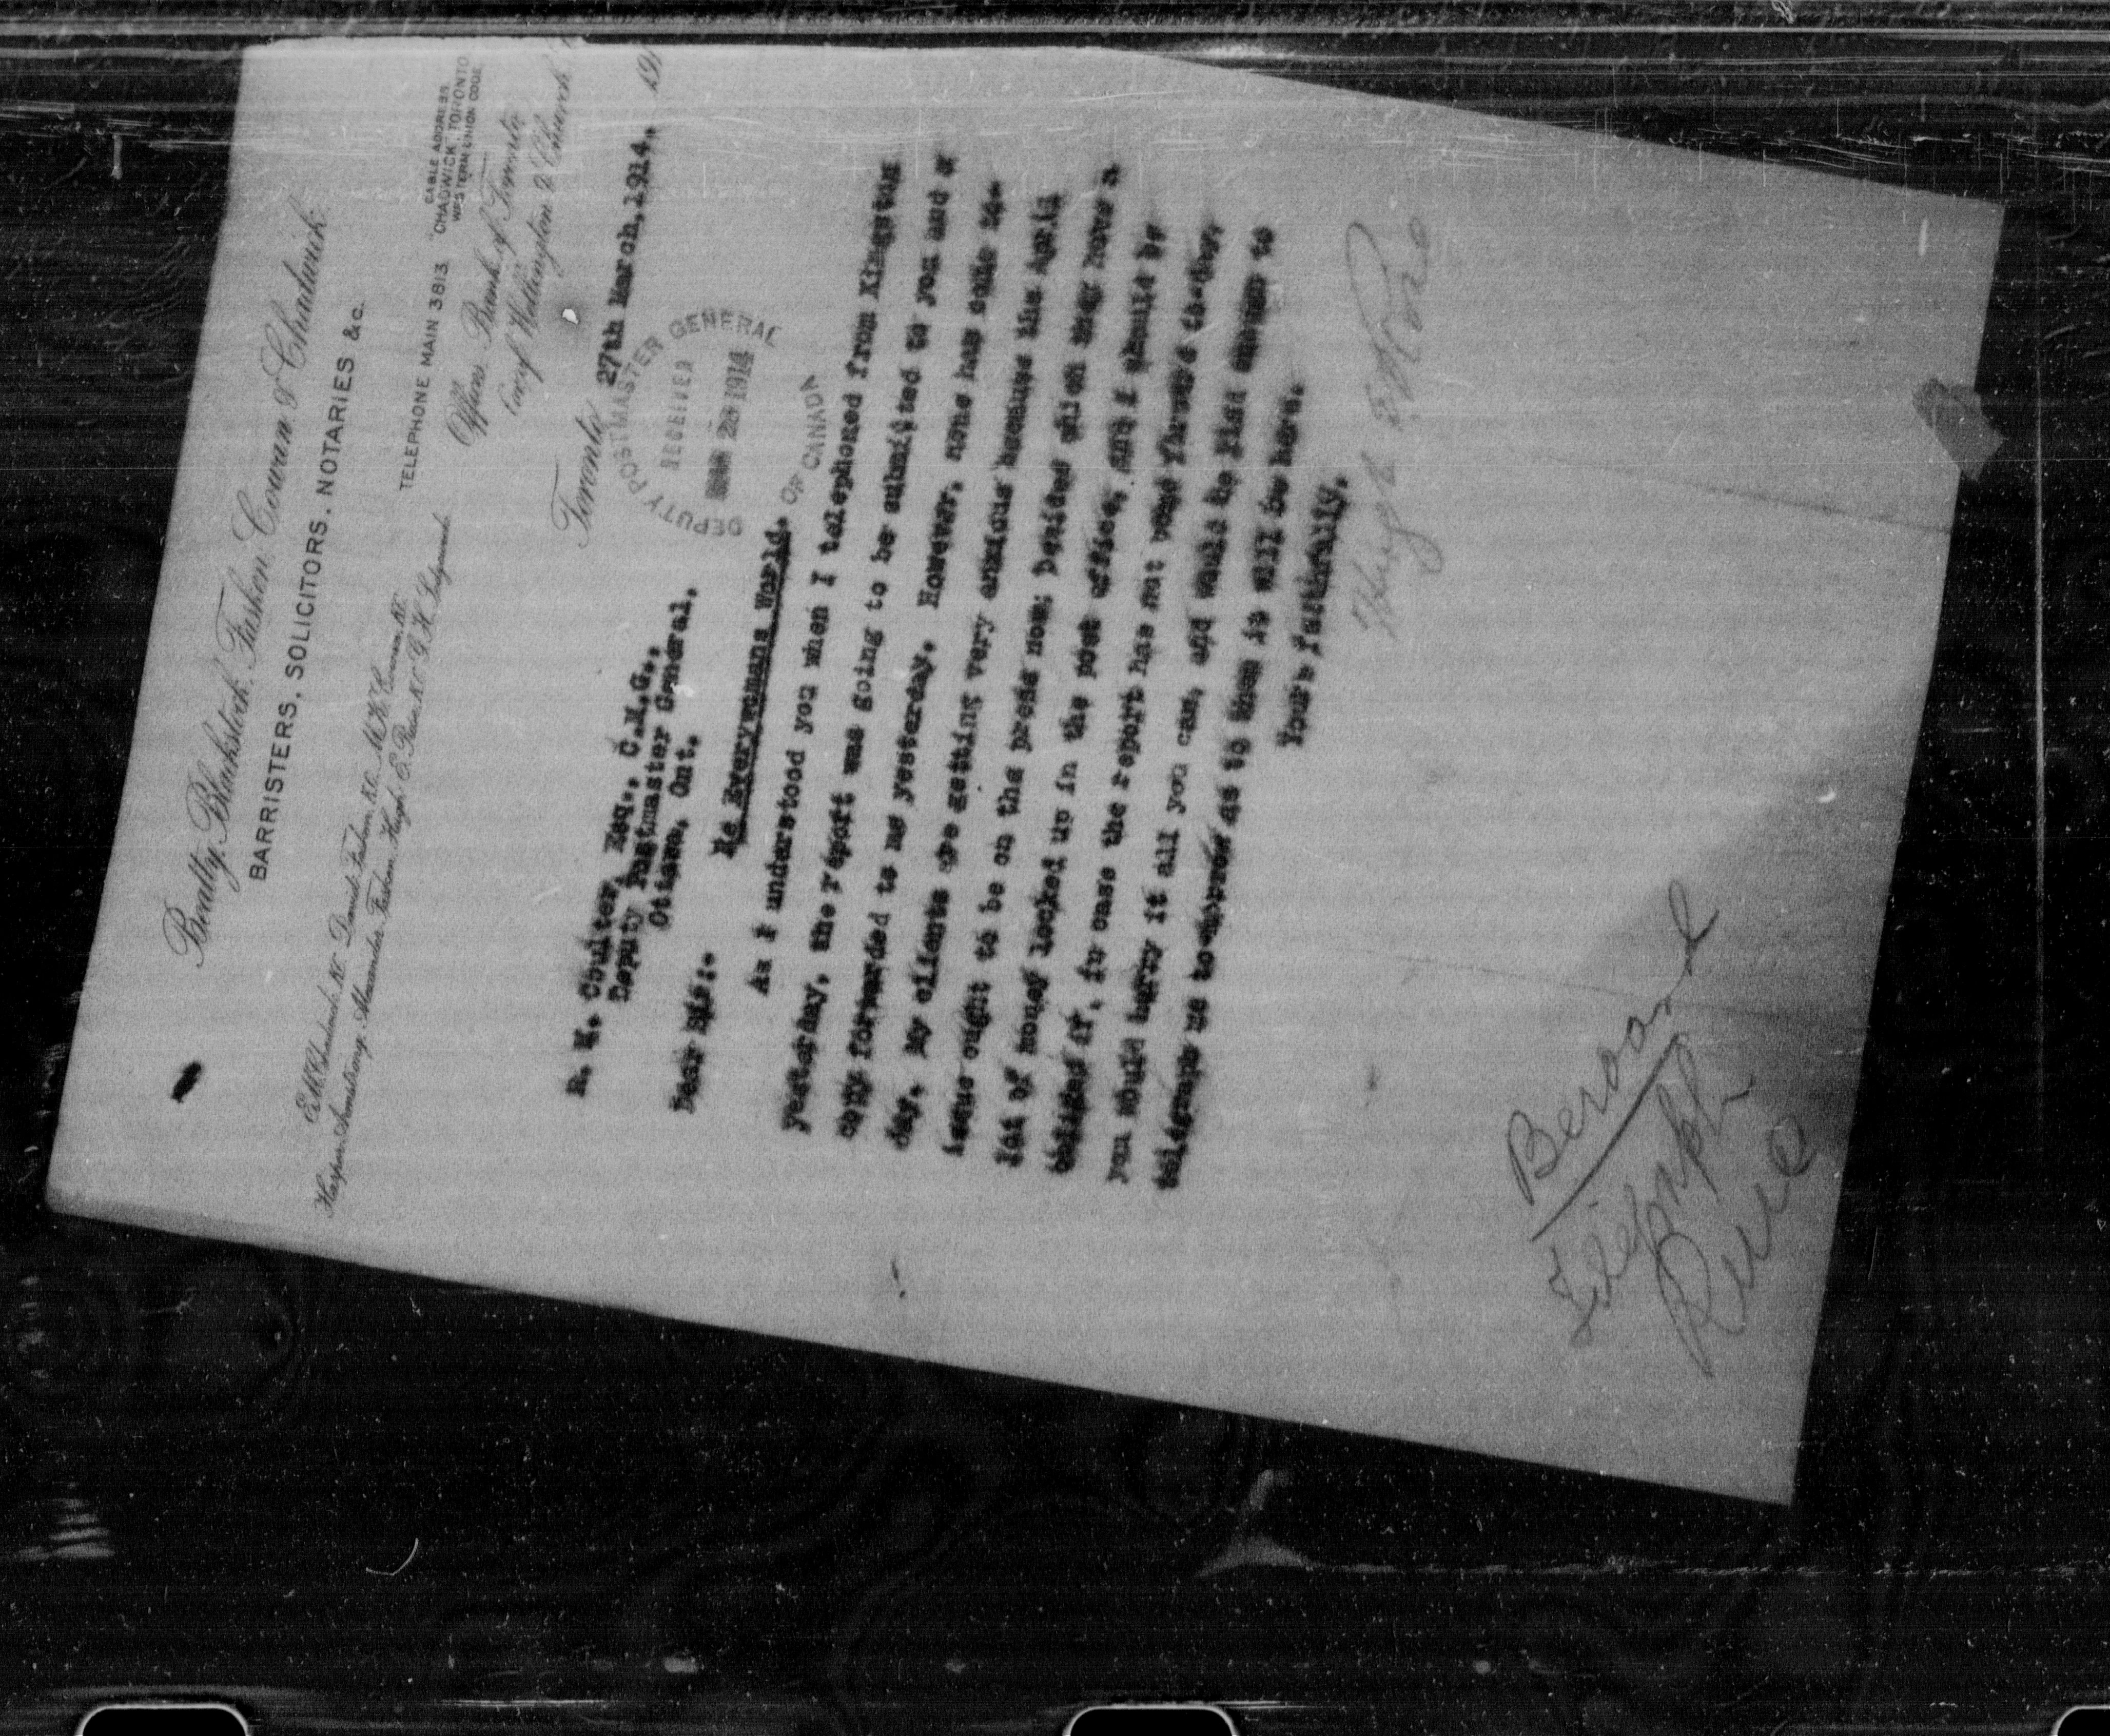 Beatty, Blackstock, Fasken, Cowan & Chadwick
BARRISTERS, SOLICITORS, NOTARIES &c.
E.M. Chadwick, K.C. David Fasken, K.C. M.K. Cowan, K.C.
Harper Armstrong, Alexander Fasken, Hugh E. Rose, K.C. G.H. Sedgewick
TELEPHONE MAIN 3813
CABLE ADDRESS
"CHADWICK", TORONTO
WESTERN UNION CODE
Offices, Bank of Toronto
Cor. of Wellington & Church
Toronto 27th March, 1914. 191
DEPUTY POSTMASTER GENERAL
RECEIVED
MAR 28 1914
OF CANADA
R. M. Coulter, Esq., C.M.G.,
Deputy Postmaster General,
Ottawa, Ont.
Dear Sir:-
Re Everywomans World.
As I understood you when I telephoned from Kingston
yesterday, the report was going to be submitted to you and a
copy forwarded to me yesterday. However, none has come to-
day. My clients are getting very anxious because the April
issue ought to be on the press now; besides which they have a
lot of money locked up in the post office, and I should be
obliged if, in case the report has not been forward to-day,
you would hurry it all you can, and would be glad enough to
telegraph me to-morrow as to when it will be here.
Yours faithfully,
Hugh E. Rose